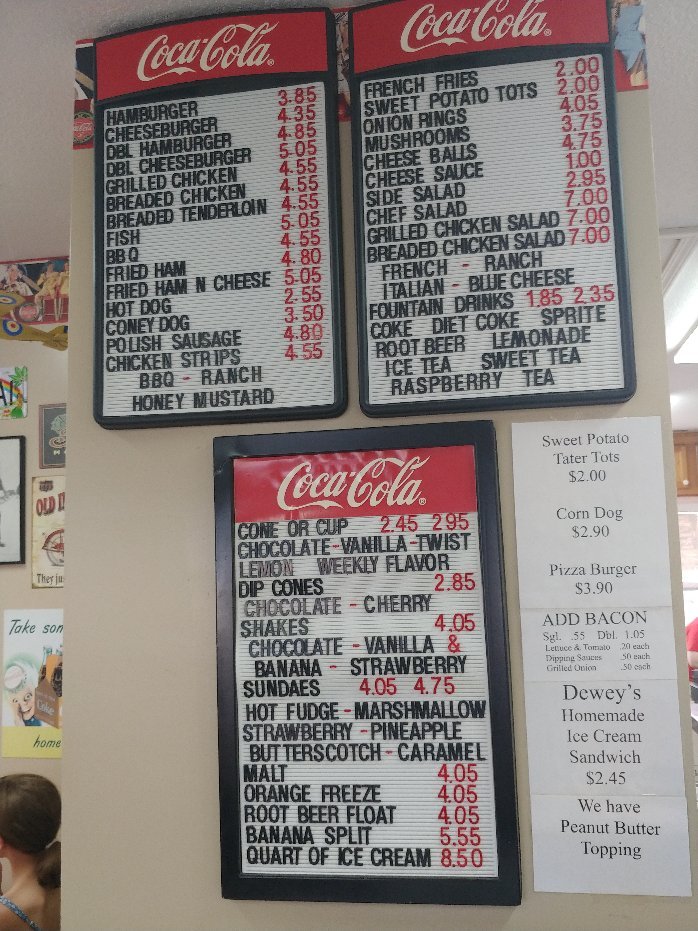 Coca-Cola
HAMBURGER 3.85
CHEESEBURGER 4.35
DBL HAMBURGER 4.85
DBL CHEESEBURGER 5.05
GRILLED CHICKEN 4.55
BREADED CHICKEN 4.55
BREADED TENDERLOIN 4.55
FISH 5.05
BBQ 4.55
FRIED HAM 4.80
FRIED HAM N CHEESE 5.05
HOT DOG 2.55
CONEY DOG 3.50
POLISH SAUSAGE 4.80
CHICKEN STRIPS 4.55
BBQ - RANCH
HONEY MUSTARD
Coca-Cola
FRENCH FRIES 2.00
SWEET POTATO TOTS 2.00
ONION RINGS 4.05
MUSHROOMS 3.75
CHEESE BALLS 4.75
CHEESE SAUCE 1.00
SIDE SALAD 2.95
CHEF SALAD 7.00
GRILLED CHICKEN SALAD 7.00
BREADED CHICKEN SALAD 7.00
FRENCH - RANCH
ITALIAN - BLUE CHEESE
FOUNTAIN DRINKS 1.85 2.35
COKE DIET COKE SPRITE
ROOT BEER LEMONADE
ICE TEA SWEET TEA
RASPBERRY TEA
Coca-Cola
CONE OR CUP 2.45 2.95
CHOCOLATE-VANILLA-TWIST
LEMON WEEKLY FLAVOR
DIP CONES 2.85
CHOCOLATE - CHERRY
SHAKES 4.05
CHOCOLATE - VANILLA &
BANANA - STRAWBERRY
SUNDAES 4.05 4.75
HOT FUDGE - MARSHMALLOW
STRAWBERRY - PINEAPPLE
BUTTERSCOTCH - CARAMEL
MALT 4.05
ORANGE FREEZE 4.05
ROOT BEER FLOAT 4.05
BANANA SPLIT 5.55
QUART OF ICE CREAM 8.50
Sweet Potato
Tater Tots
$2.00
Corn Dog
$2.90
Pizza Burger
$3.90
ADD BACON
Sgl. .55 Dbl. 1.05
Lettuce & Tomato .20 each
Dipping Sauces .50 each
Grilled Onion .50 each
Dewey's
Homemade
Ice Cream
Sandwich
$2.45
We have
Peanut Butter
Topping
OLD
They
Take
Coke
home